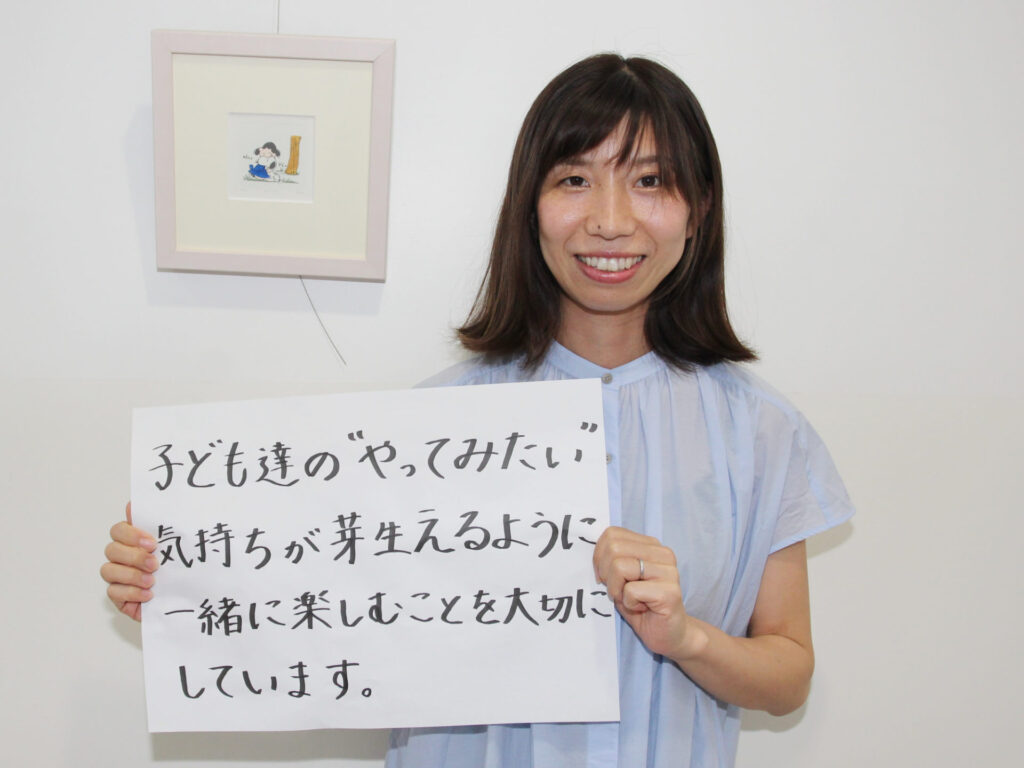 子ども達の"やってみたい"
気持ちが芽生えるように
一緒に楽しむことを大切に
しています。